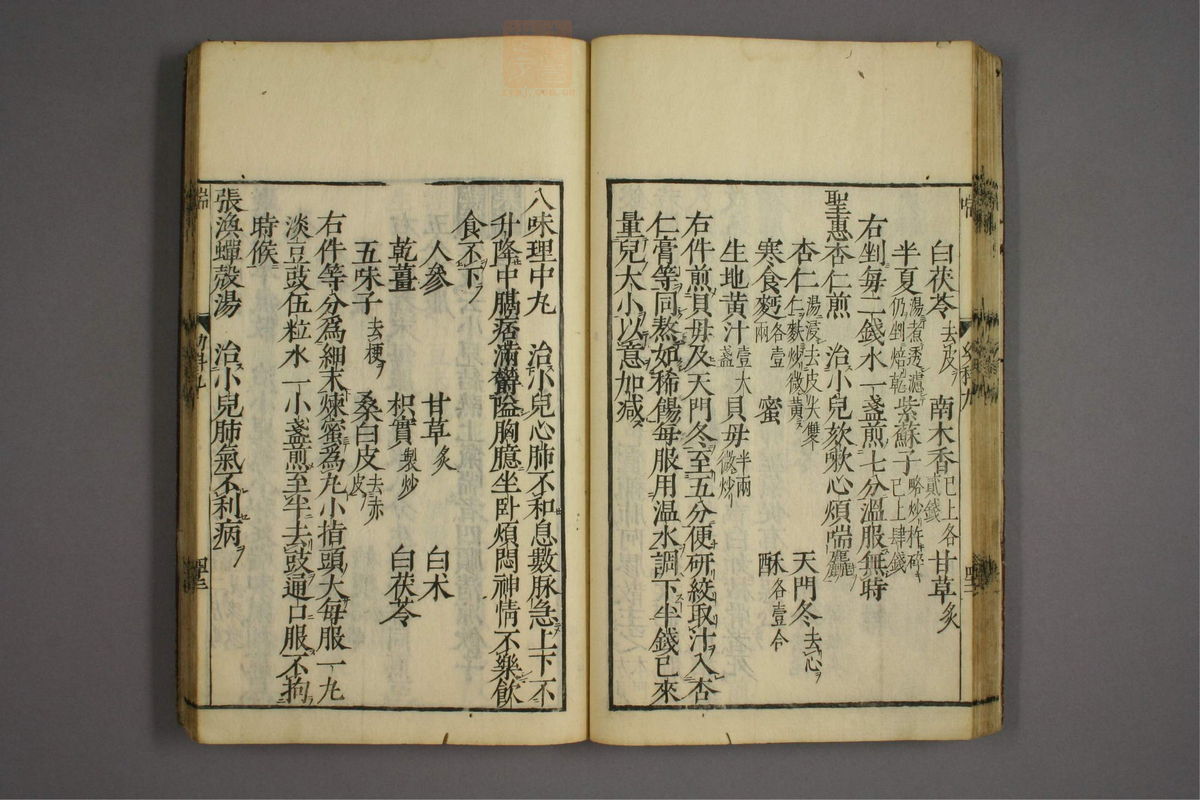 白茯苓去皮 南木香已上各貳錢 甘草炙
半夏湯煮透濾仍剉焙乾 紫蘇子略炒杵碎已上肆錢
右剉每二錢水一盞煎七分溫服無時
聖惠杏仁煎 治小兒欬嗽心煩喘麤
杏仁湯浸去皮尖雙仁麩炒微黃 天門冬去心
寒食麪各壹兩 蜜 酥各壹合
生地黃汁壹大盞 貝母半兩微炒
右件煎貝母及天門冬至五分便研絞取汁入杏
仁膏等同熬如稀餳每服用温水調下半錢已來
量兒大小以意加减
八味理中丸 治小兒心肺不和息數脉急上下不
升降中膈痞滿欝隘胸臆坐卧煩悶神情不樂飲
食不下
人參 甘草炙 白术
乾薑 枳實製炒 白茯苓
五味子去梗 桑白皮去赤皮
右件等分爲細末煉蜜爲丸小指頭大每服一丸
淡豆豉伍粒水一小盞煎至半去豉通口服不拘
時候
張渙蟬殼湯 治小兒肺氣不利病